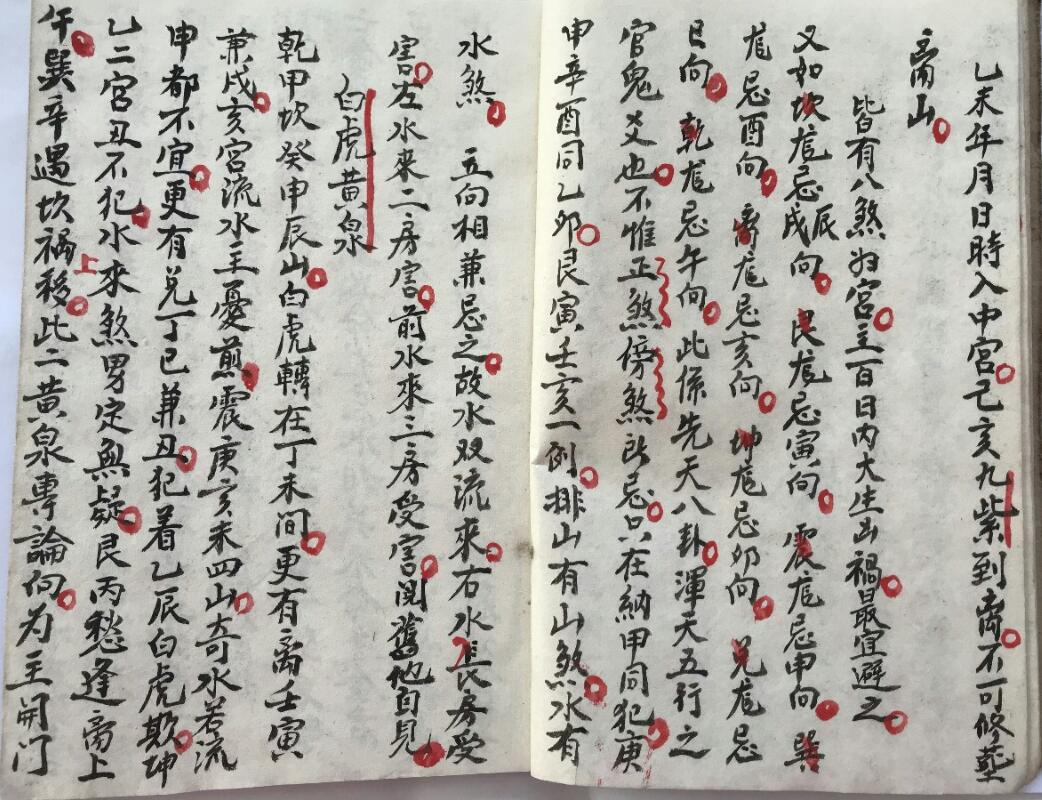 乙未年月日時入中宮己亥九紫到离不可修塟
离山
皆有八煞為宮主百日內大生出禍最宜避之
又如坎尨忌戌辰向艮尨忌寅向震尨忌申向巽
尨忌酉向离尨忌亥向坤尨忌卯向兑尨忌
巳向乾尨忌午向此係先天八卦渾天五行之
官鬼爻也不惟正煞傍煞所忌只在納甲同犯庚
申辛酉同乙卯艮寅壬亥一例排山有山煞水有
水煞 立向相兼忌之故水双流來右水長房受
害左水來二房害前水來三房受害閱舊地自見
白虎黄泉
乾甲坎癸申辰山白虎轉在丁未間更有离壬寅
兼戌亥宮流水主憂煎震庚亥未四山奇水若流
申都不宜更有兑丁巳兼丑犯着乙辰白虎欺坤
乙二宮丑不犯水來煞男定無疑艮丙愁逢离上
午巽辛遇坎禍上移此二黄泉專論向为主開门